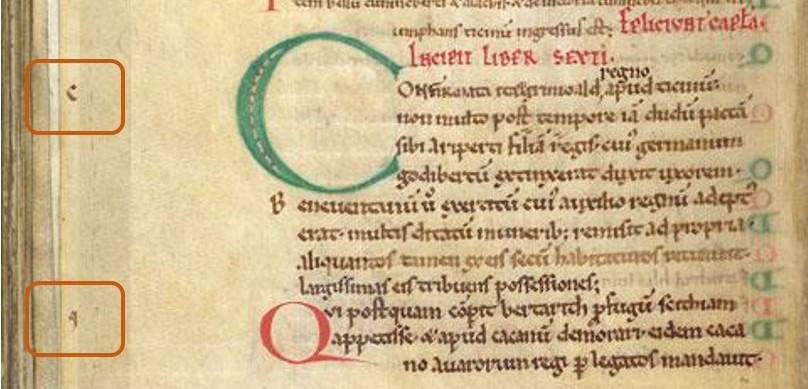 triumphans ticinū ingressus est; Expliciunt capła
Incipit liber sexti.
regno
Confirmata grimoald, apud ticinū
non multo post tempore iā dudū pactā
sibi ariperti filiā regis. cui' germanum
godibertū extinxerat duxit uxorem.
Beneuentanū ů exercitū cui' auxilio regnū adept'
erat. multis ditatū munerib; remisit ad propria.
aliquantos tamen ex eis secū habitaturos retinuit.
largissimas eis tribuens possessiones;
Qui postquam cōpit bertarith pfugū scithiam
appetisse. & apud cacanū demorari. eidem caca
no auarorum regi p legatos mandauit.
c
q